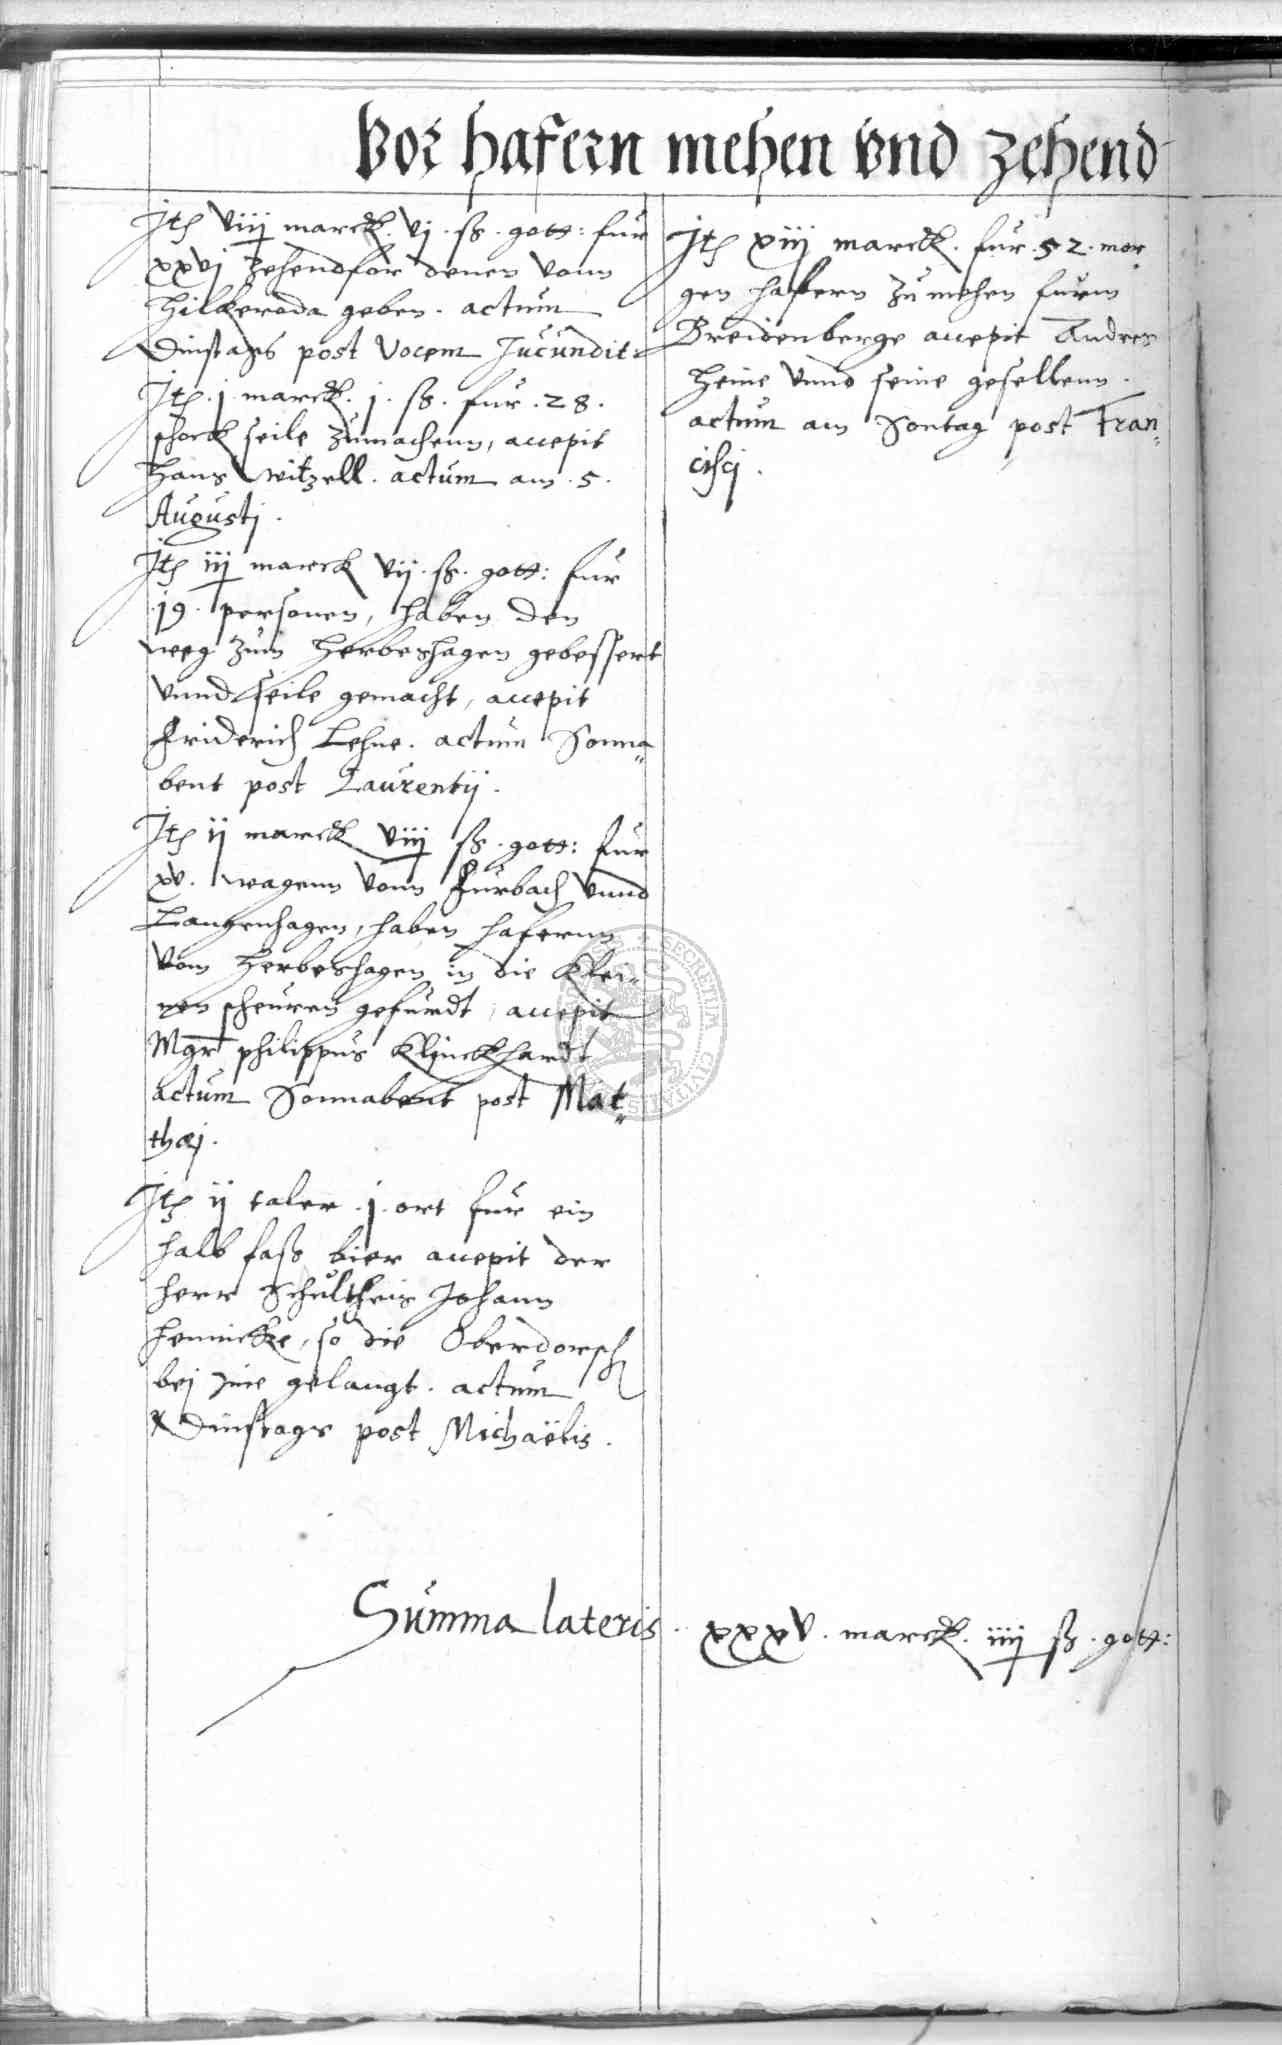 Vor hafern mehen vnd zehend
Itē viij marck. vj. ß. gott: fur
xxvj zehendfor denen vonn
Hilkeroda geben. actum
Dinstags post Vocem Jucundit:
Itē. j. marck. j. ß. fur. 28.
schock seile zumachenn, accepit
Hans Witzell. actum am. 5.
Augustj.
Itē iij marck vij. ß. gott: fur
19. personen, haben den
weg zum Herbeshagen gebessert
vnnd seile gemacht, accepit
Friderich Lehne. actum Sonna„
bent post Laurentij.
Itē ij marck viij ß. gott: fur
xv. wagenn vonn Furbach vnnd
Langenhagen, haben hafernn
vom Herbeshagen in die Klei„
nen scheuren gefurdt, accepit
Mgr philippus Klinckhardt
actum Sonnabent post Mat„
thæj.
Itē ij taler. j. ort fur ein
halb faß bier accepit der
herr Schultheis Johann
Hennicke, so die Oberdorsch
bej jme gelangt. actum
Dinstags post Michaëlis.
Itē xiij marck. fur. 52. mor„
gen hafern zu mehen furm
Breidenberge accepit Andres
Heine vnnd seine gesellenn.
actum am Sontag post Fran„
cisci.
Summa lateris. xxxv. marck. iiij ß. gott:
SECRETUM CIVITATIS